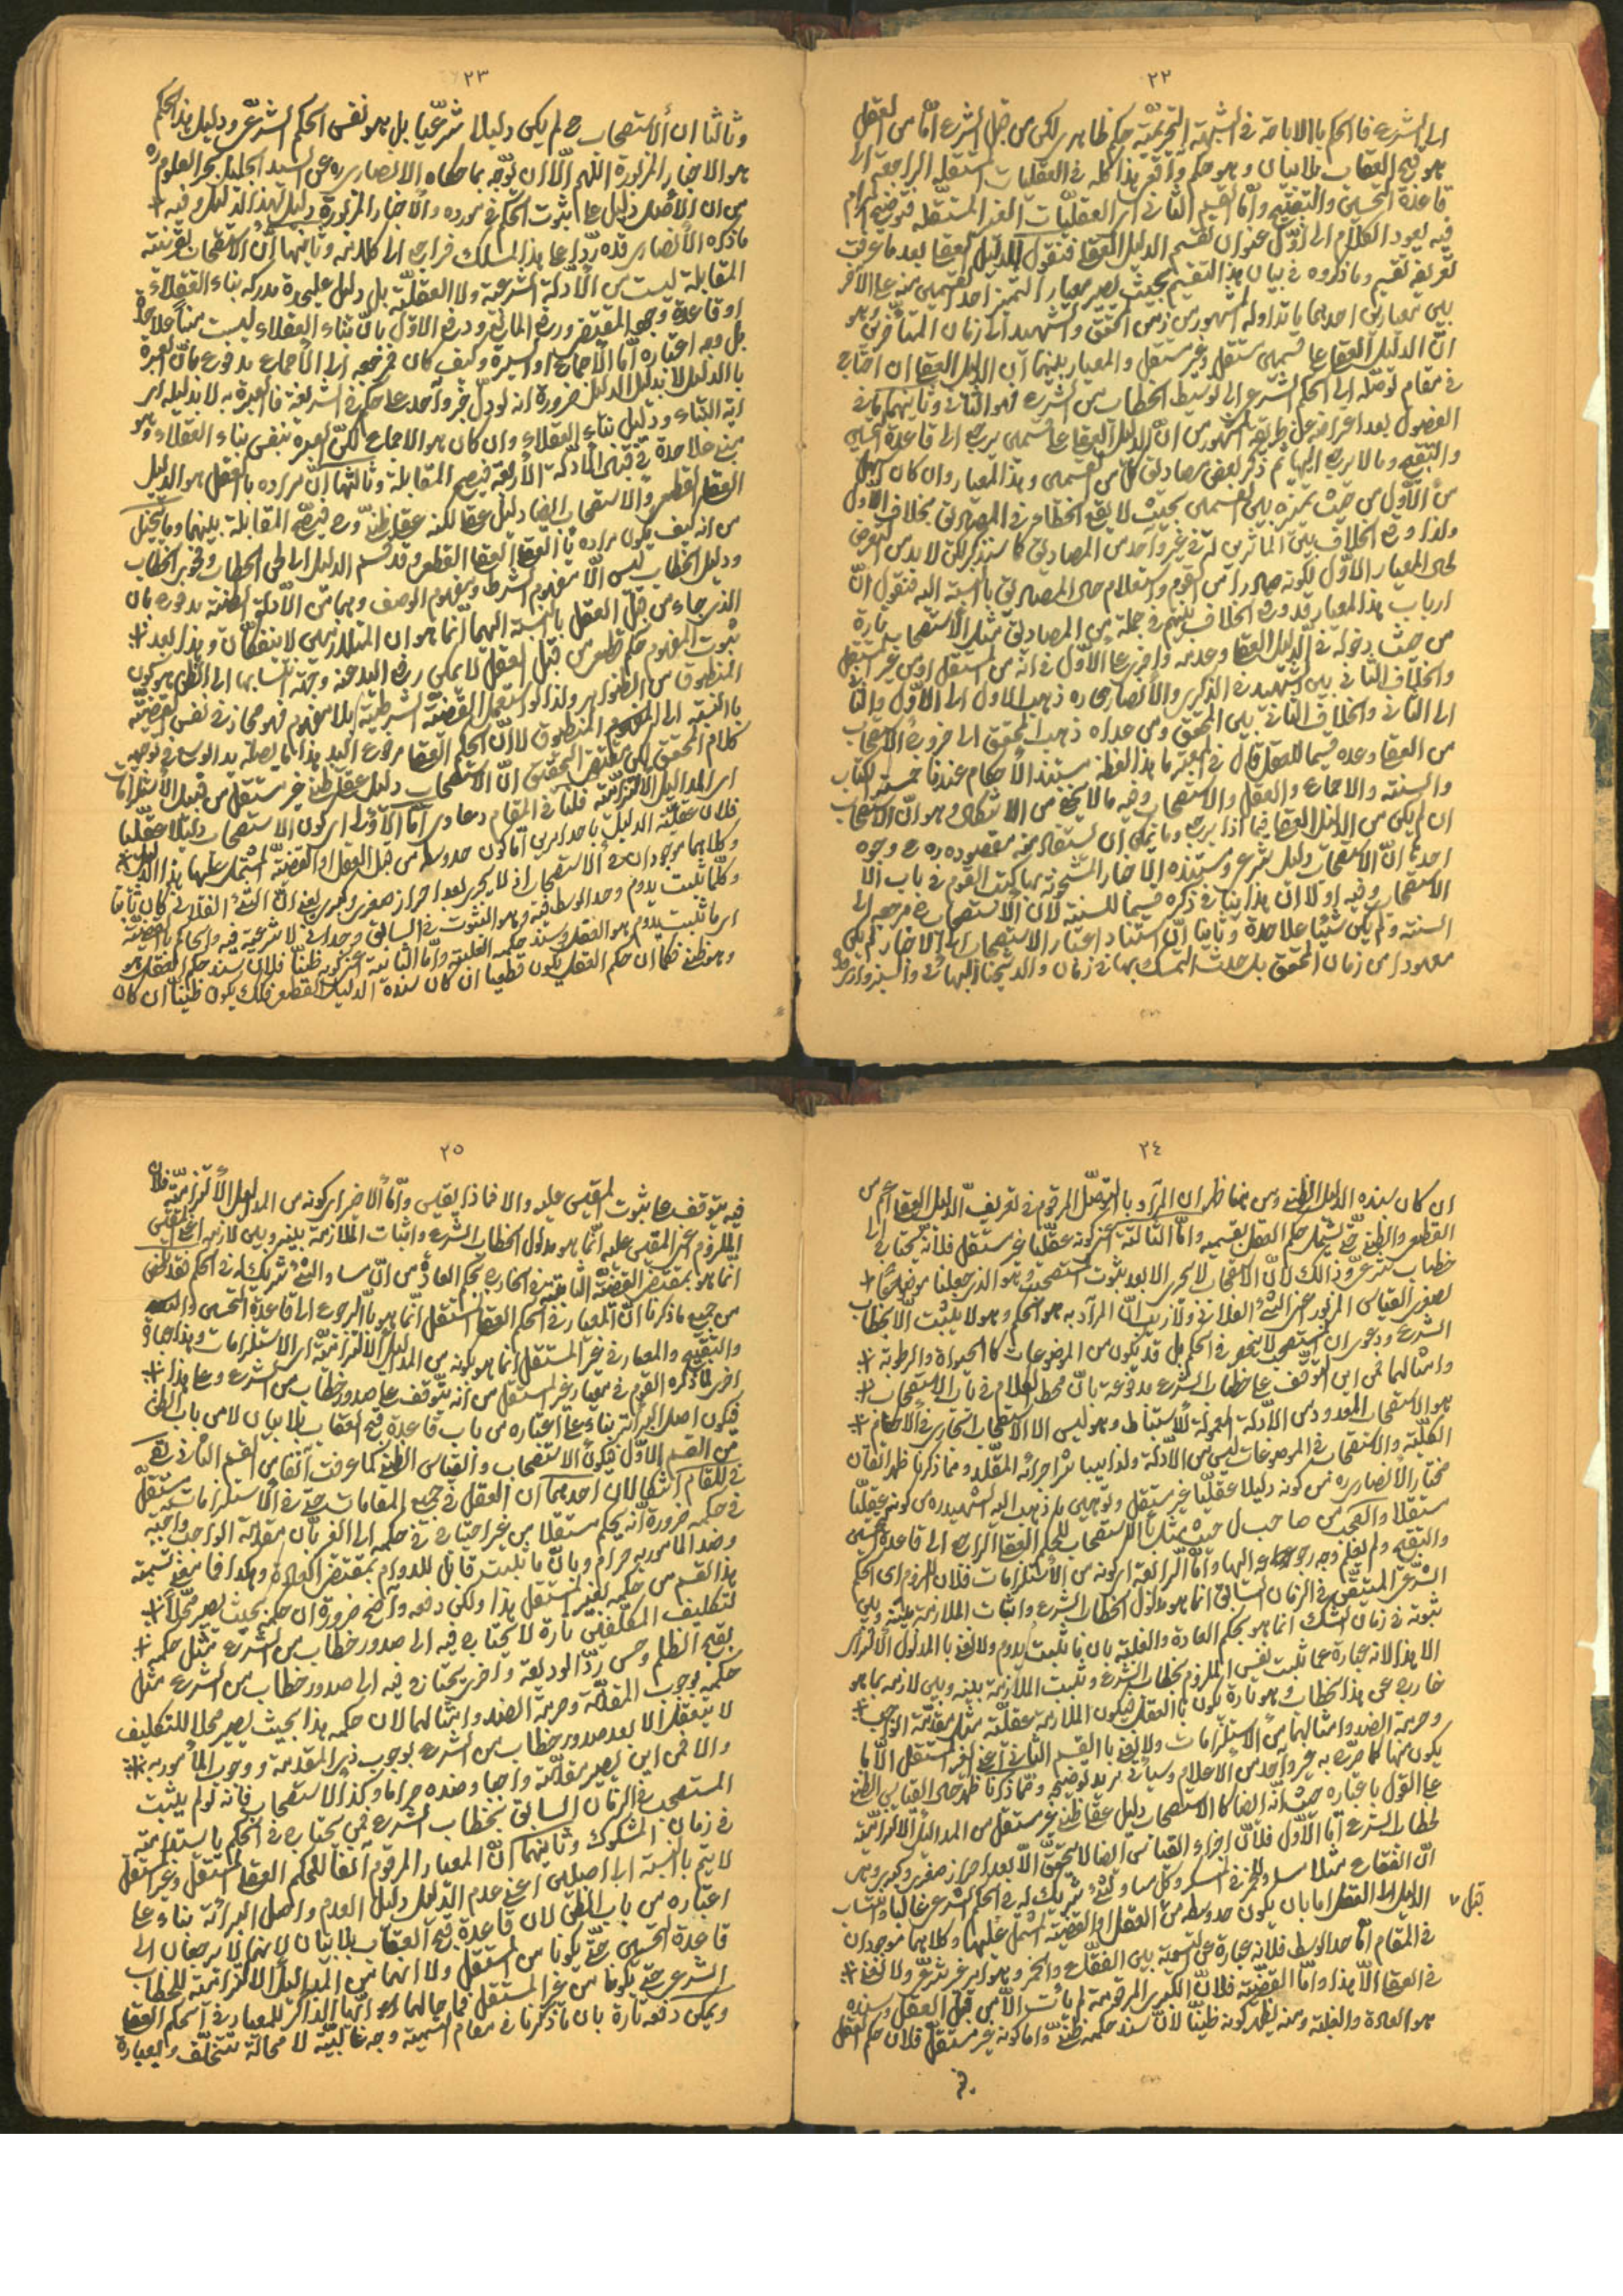 ٢٢
الى الشرع فالحكم بالاباحة فى الشبهة التحريميّة حكم ظاهرى لكن من قبل الشرع امّا من العقل
هو قبح العقاب بلا بيان وهو حكم واقعى هذا كله فى العقليات المستقلة الراجعة الى
قاعدة التحسين والتقبيح وامّا القسم الثانى اى العقليّات الغير المستقلة فتوضيح المرام
فيه يعود الكلام الى اوّل عنوان تقسيم الدليل العقلى فنقول للدليل العقلى بعد ما عرفت
تعريفه تقسيم وما ذكروه فى بيان هذا التقسيم بحيث يصير معيار التميز احد القسمين منه على الآخر
بين معيارين احدهما ما تداوله المشهور من زمن المحقق والشهيد الى زمان المتأخرين وهو
انّ الدليل العقلى على قسمين مستقل وغير مستقل والمعيار بينهما ان الدليل العقلى ان احتاج
فى مقام توصّله الى الحكم الشرعى الى توسيط الخطاب من الشرع فهو الثانى وثانيهما ما فى
الفصول بعد اعراضه عن طريقة المشهور من انّ الدليل العقلى على قسمين ما يرجع الى قاعدة التحسين
والتقبيح وما لا يرجع اليها ثم ذكر بعض مصاديق كل من القسمين وهذا المعيار وان كان اسهل
من الاوّل من حيث تميزه بين القسمين بحيث لا يقع الخطاء فى المصاديق بخلاف الاوّل
ولذا وقع الخلاف بين المتأخرين فى غير واحد من المصاديق كما ستذكر لكن لا بد من التعرض
لحال المعيار الاوّل لكونه صادرا من القوم واستعلام حال المصاديق بالنسبة اليه فنقول انّ
ارباب هذا المعيار قد وقع الخلاف بينهم فى جملة من المصاديق مثل الاستصحاب تارة
من حيث دخوله فى الدليل العقلى وعدمه واخرى على الاوّل فى انه من المستقل او من غير المستقل
والخلاف الثانى بين الشهيد فى الذكرى والانصارى ره ذهب الاول الى الاوّل والثانى
الى الثانى والخلاف الثانى بين المحقق ومن عداه ذهب المحقق الى خروج الاستصحاب
من العقلى وعده قسيما للعقل قال فى المعتبر ما هذا لفظه مستند الاحكام عندنا خمسة الكتاب
والسنة والاجماع والعقل والاستصحاب وفيه ما لا يخفى من الاشكال وهو انّ الاستصحاب
ان لم يكن من الدليل العقلى فيما اذا يرجع وما يمكن ان يستفاد منه مقصوده ره وجوه
احدها انّ الاستصحاب دليل شرعى ومستنده الاخبار المشحونة بها كتب القوم فى باب
الاستصحاب وفيه اولا ان هذا ينافى ذكره قسيما للسنة لان الاستصحاب ح مرجعه الى
السنة ولم يكن شيئا علاحدة وثانيا انّ استناد اعتبار الاستصحاب الى الاخبار لم يكن
معهودا من زمان المحقق بل حدث التمسك بها فى زمان والد شيخنا البهائى
٢٣
وثالثا ان الاستصحاب ح لم يكن دليلا شرعيّا بل هو نفس الحكم الشرعى ودليل هذا الحكم
هو الاخبار المزبورة اللهم الّا ان توجّه بما حكاه الانصارى ره عن السيد الجليل بحر العلوم ره
من ان الاصل دليل على ثبوت الحكم فى مورده والاخبار المزبورة دليل لهذا الدليل وفيه *
ما ذكره الانصارى قده ردّا على هذا المسلك فراجع الى كلامه وثانيها أن الاستصحاب بقرينة
المقابلة ليست من الادلة الشرعية ولا العقليّة بل دليل عليحدة مدركه بناء العقلاء
او قاعدة وجود المقتضى ورفع المانع ودفع الاوّل بانّ بناء العقلاء ليست مبنا علاحدة
بل وجه اعتباره امّا الاجماع او السيرة وكيف كان فمرجعه الى الاجماع مدفوع بانّ العبرة
بالدليل لا بدليل الدليل ضرورة انه لو دلّ خبر واحد على حكم فى الشريعة فالعبرة به لا بدليله اى
اية النباء ودليل بناء العقلاء وان كان هو الاجماع لكنّ العبرة بنفس بناء العقلاء وهو
مبنى علاحدة فى قبال الادلة الاربعة فيصح المقابلة وثالثها انّ مراده بالعقل هو الدليل
العقلى القطعى والاستصحاب ايضا دليل عقلى لكنه عقلى ظنّى وح فيصح المقابلة بينهما وما يتخيل
من انه كيف يكون مراده بالعقلى العقلى القطعى وقد قسم الدليل الى لحن الخطاب وفحوى الخطاب
ودليل الخطاب ليس الّا مفهوم الشرط ومفهوم الوصف وهما من الادلة الظنية مدفوع بان
الذى جاء من قبل العقل بالنسبة اليهما انّما هو ان المتلازمين لا ينفكّان وهذا بعد *
ثبوت المفهوم حكم قطعى من قبل العقل لا يمكن رفع اليد عنه وجهة انتسابهما الى الظن هو كون
المنطوق من الظنون ولذا لو استعمل القضيّة الشرطيّة بلا مفهوم فهو مجاز فى نفس القضيّة
بالنسبة الى المفهوم المنطوق لا انّ الحكم العقلى مرفوع اليد هذا ما يصل يد الوسع فى توجيه
كلام المحقق لكن مقتضى التحقيق انّ الاستصحاب دليل عقلى ظنى غير مستقل من قبيل الاستلزامات
اى المداليل الالتزاميّة فلنا فى المقام دعاوى امّا الاوّل اى كون الاستصحاب دليلا عقليّا
فلان عقليّة الدليل باحد امرين امّا كون حد وسطه من قبل العقل او القضيّة المشتمل عليها هذا الدليل
وكلاهما موجودان فى الاستصحاب اذ لا يجرى بعد احراز صغرى وكبرى يعنى انّ الشئ الفلانى كان ثابتا
وكلّما ثبت يدوم وحد الوسط فيه وهو الثبوت فى السابق وجدانى لا شرعية فيه والحاكم بالقضيّة
اى ما ثبت يدوم هو العقل وسند حكمه الغلبة وامّا الثانية اى كونه ظنيّا فلان سند حكم العقل هو
وهو ظنى فكما ان حكم العقل يكون قطعيا ان كان سنده الدليل القطعى فكك يكون ظنيّا ان كان
٢٤
ان كان سنده الدليل الظنى ومن هنا ظهر ان المراد بالتوصّل المرقوم فى تعريف الدليل العقلى اعم من
القطعى والظنى حتّى يشمل حكم العقل بقسميه وامّا الثالثة اعنى كونه عقليّا غير مستقل فلانّه يحتاج الى
خطاب شرعى وذالك لانّ الاستصحاب لا يجرى الا بعد ثبوت المستصحب وهو الذى جعلنا موضوعا *
لصغرى القياس المزبور اعنى الشئ الفلانى ولا ريب انّ المراد به هو الحكم وهو لا يثبت الّا بخطاب
الشرع ودعوى ان المستصحب لا ينحصر فى الحكم بل قد يكون من الموضوعات كالحيوة والرطوبة *
وامثالهما فمن اين التوقّف على خطاب الشرع مدفوعة بانّ محط الكلام فى باب الاستصحاب *
هو الاستصحاب المعدود من الادلة المعمولة للاستنباط وهو ليس الا الاستصحاب الجارى فى الاحكام *
الكليّة والاستصحاب فى الموضوعات ليس من الادلة ولذا يباشر اجرائه المقلّد ومما ذكرنا ظهر اتقان
مختار الانصارى ره من كونه دليلا عقليّا غير مستقل وتوهين ما ذهب اليه الشهيد ره من كونه عقليّا
مستقلا والعجب من صاحب ل حيث يمثل بالاستصحاب للحكم العقلى الراجع الى قاعدة التحسين
والتقبيح ولم يعلم وجه رجوعه اليها وامّا الرابعة اى كونه من الاستلزامات فلان الملزوم اى الحكم
الشرعى المتيقن فى الزمان السابق انما هو مدلول الخطاب الشرعى واثبات الملازمة بينه وبين
ثبوته فى زمان الشك انما هو بحكم العادة والغلبة بان ما ثبت يدوم ولا نعنى بالمدلول الالتزامى
الا هذا لانه عبارة عما ثبت نفس الملزوم بخطاب الشرع وتثبت الملازمة بينه وبين لازمه بما هو
خارج عن هذا الخطاب وهو تارة يكون بالعقل فيكون الملازمة عقليّة مثل مقدّمة الواجب *
وحرمة الضد وامثالهما من الاستلزامات ولا نعنى بالقسم الثانى اعنى الغير المستقل الّا ما
يكون منها كما صرّح به غير واحد من الاعلام وسيأتى مزيد توضيح ومما ذكرنا ظهر حال القياس الظنى
على القول باعتباره حيث انّه ايضا كالاستصحاب دليل عقلى ظنى غير مستقل من المداليل الالتزاميّة
لخطاب الشرع امّا الاوّل فلانّ اجراء القياس ايضا لا يتحقق الّا بعد احراز صغرى وكبرى وهى
انّ الفقاع مثلا مساو للخمر فى السكر وكل مساو لشئ شريك له فى الحكم الشرعى غالبا
الدليل العقلى اما بان يكون حد وسطه من قبل العقل او القضيّة المشتمل عليها وكلاهما موجودان
فى المقام امّا حد الوسط فلانه عبارة عن التسوية بين الفقّاع والخمر وهو امر غير شرعى ولا نعنى *
فى العقلى الّا هذا وامّا القضيّة فلانّ الكبرى المرقومة لم يأت الّا من قبل العقل وسنده
هو العادة والغلبة ومنه يظهر كونه ظنيّا لانّ سند حكمه ظنّى وامّا كونه غير مستقل فلان حكم العقل
فيه
٢٥
فيه يتوقف على ثبوت المقيس عليه والا فماذا يقيس وامّا الاخير اى كونه من المداليل الالتزاميّة فلان
الملزوم اعنى المقيس عليه انّما هو مدلول الخطاب الشرعى واثبات الملازمة بينه وبين لازمه اعنى المقيس
انّما هو بمقتضى القضيّة الثابتة فى الخارج بحكم العادة من انّ مساو الشئ شريك له فى الحكم فقد ظهر
من جميع ما ذكرنا انّ المعيار فى الحكم العقلى المستقل انّما هو بالرجوع الى قاعدة التحسين
والتقبيح والمعيار فى غير المستقل انّما هو بكونه من المداليل الالتزاميّة اى الاستلزامات وهذا عبارة
اخرى لما ذكره القوم فى معيار غير المستقل من أنه يتوقف على صدور خطاب من الشرع وعلى هذا *
فيكون اصل البرائة بناء على اعتباره من باب قاعدة قبح العقاب بلا بيان لا من باب الظن
من القسم الاوّل فيكون الاستصحاب والقياس الظنى كما عرفت آنفا من القسم الثانى بقى
فى المقام اشكالان احدهما ان العقل فى جميع المقامات حتى فى الاستلزامات مستقلّ
فى حكمه ضرورة انّه يحكم مستقلا من غير احتياج فى حكمه الى الغير بانّ مقدّمة الواجب واجبة
وضد المأمور به حرام وبانّ ما ثبت قابل للدوام بمقتضى العادة وهكذا فما معنى تسمية
هذا القسم من حكمه بغير المستقل هذا ولكن دفعه واضح ضرورة ان حكمه بحيث يصير محلّا *
لتكليف المكلّفين تارة لا يحتاج فيه الى صدور خطاب من الشرع مثل حكمه *
بقبح الظلم وحسن ردّ الوديعة واخرى يحتاج فيه الى صدور خطاب من الشرع مثل
حكمه بوجوب المقدّمة وحرمة الضد وامثالهما لان حكمه هذا بحيث يصير محلا للتكليف
لا يتعقل الا بعد صدور خطاب من الشرع بوجوب ذى المقدمة ووجوب المأمور به *
والا فمن اين يصير مقدّمته واجبا وضده حراما وكذا الاستصحاب فانه لو لم يثبت
المستصحب فى الزمان السابق بخطاب الشرع فمن يحتاج فى الحكم باستقراره
فى زمان المشكوك وثانيهما انّ المعيار المرقوم آنفا للحكم العقلى المستقل وغير المستقل
لا يتم بالنسبة الى اصلين اعنى عدم الدليل دليل العدم واصل البرائة بناء على
اعتباره من باب الظن لان قاعدة قبح العقاب بلا بيان لانهما لا يرجعان الى
قاعدة التحسين حتّى يكونا من المستقل ولا انهما من المداليل الالتزاميّة للخطاب
الشرعى حتّى يكونا من غير المستقل فما حالهما ايّها الذاكر للمعيار فى الحكم العقلى
ويمكن دفعه تارة بان ما ذكرنا فى مقام التسمية وجه غالبيّة لا محالة تتخلّف وبعبارة